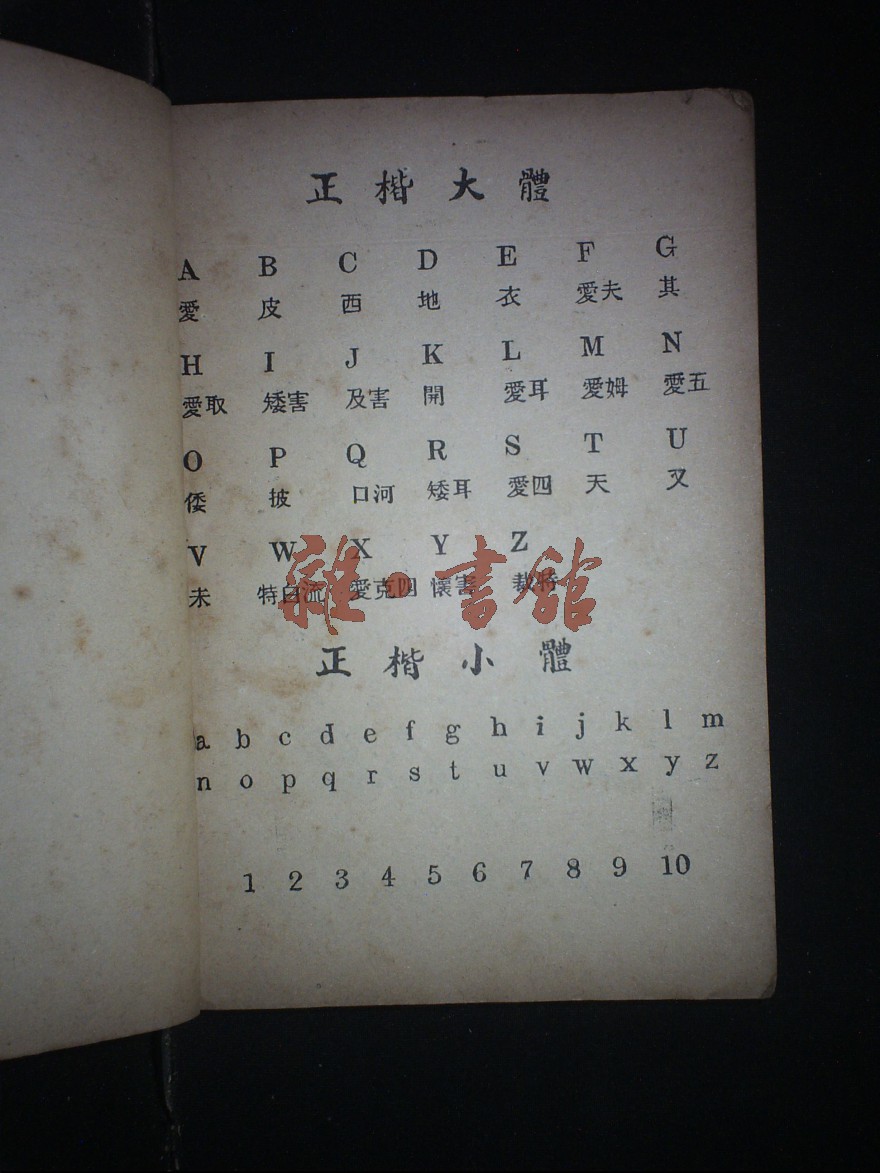 正楷大體
A B C D E F G
愛 皮 西 地 衣 愛夫 其
H I J K L M N
愛取 矮害 及害 開 愛耳 愛姆 愛五
O P Q R S T U
倭 披 口河 矮耳 愛四 天 又
V W X Y Z
未 特白流 愛克四 懷害 裁特
雜·書館
正楷小體
a b c d e f g h i j k l m
n o p q r s t u v w x y z
1 2 3 4 5 6 7 8 9 10